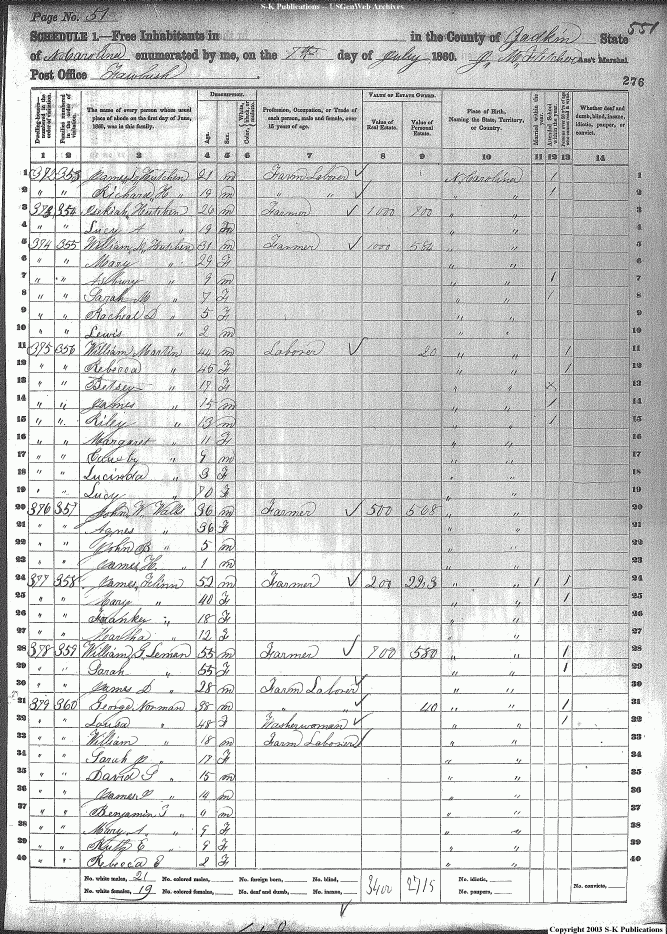 S-K Publications -- USGenWeb Archives
Page No. 51
551
SCHEDULE 1.—Free Inhabitants in in the County of Yadkin State
of N. Carolina enumerated by me, on the 7th day of July 1860. Ass't Marshal.
Post Office
276
Dwelling-houses—numbered in the order of visitation.
Families numbered in the order of visitation.
The name of every person whose usual place of abode on the first day of June, 1860, was in this family.
DESCRIPTION.
Age.
Sex.
Color, White, black, or mulatto.
Profession, Occupation, or Trade of each person, male and female, over 15 years of age.
VALUE OF ESTATE OWNED.
Value of Real Estate.
Value of Personal Estate.
Place of Birth, Naming the State, Territory, or Country.
Married within the year.
Attended School within the year.
Whether deaf and dumb, blind, insane, idiotic, pauper, or convict.
1 2 3 4 5 6 7 8 9 10 11 12 13 14
1 353 James Hutchen 21 m Farm Laborer N. Carolina 1 1
2 " " Richard H " 19 m " " " " 1 2
3 354 Hutchen 24 m Farmer 1000 " " 3
4 " " Lucy A " 19 F " " 4
5 355 William Hutchen 31 m Farmer 1000 " " 5
6 " " Mary " 29 F " " 6
7 " " Asbury " 9 m " " 1 7
8 " " Sarah M " 7 F " " 1 8
9 " " Racheal D " 5 F " " 9
10 " " Lewis " 2 m " " 10
11 356 William Martin 44 m Laborer 20 " " 1 11
12 " " Rebecca " 45 F " " 1 12
13 " " Betsey " 17 F " " 13
14 " " James " 15 m " " 1 14
15 " " Riley " 13 m " " 1 15
16 " " Margaret " 11 F " " 16
17 " " " 9 m " " 17
18 " " Lucinda " 3 F " " 18
19 " " Lucy " 70 F " " 19
20 376 357 John W. Walls 36 m Farmer 500 568 " " 20
21 " " Agnes " 36 F " " 21
22 " " John B " 5 m " " 22
23 " " James H. " 1 m " " 23
24 377 358 James Flinn 52 m Farmer 200 " " 1 1 24
25 " " Mary " 40 F " " 1 25
26 " " Frankey " 18 F " " 26
27 " " Martha " 12 F " " 27
28 378 359 William G. Leman 55 m Farmer 700 580 " " 1 28
29 " " Sarah " 55 F " " 1 29
30 " " James D " 28 m Farm Laborer " " 30
31 379 360 George Norman 58 m " " 40 " " 1 31
32 " " Louisa " 48 F Washerwoman " " 1 32
33 " " William " 18 m Farm Laborer " " 33
34 " " Sarah " 17 F " " 34
35 " " David S " 15 m " " 35
36 " " James P " 14 m " " 36
37 " " Benjamin T " 11 m " " 37
38 " " Mary A. " 9 F " " 38
39 " " Ruth E " 9 F " " 39
40 " " Rebecca E 2 F " " 40
No. white males, 21 No. colored males, No. foreign born, No. blind, 3400 2715 No. idiotic,
No. white females, 19 No. colored females, No. deaf and dumb, No. insane, No. paupers, No. convicts,
Copyright 2003 S-K Publications